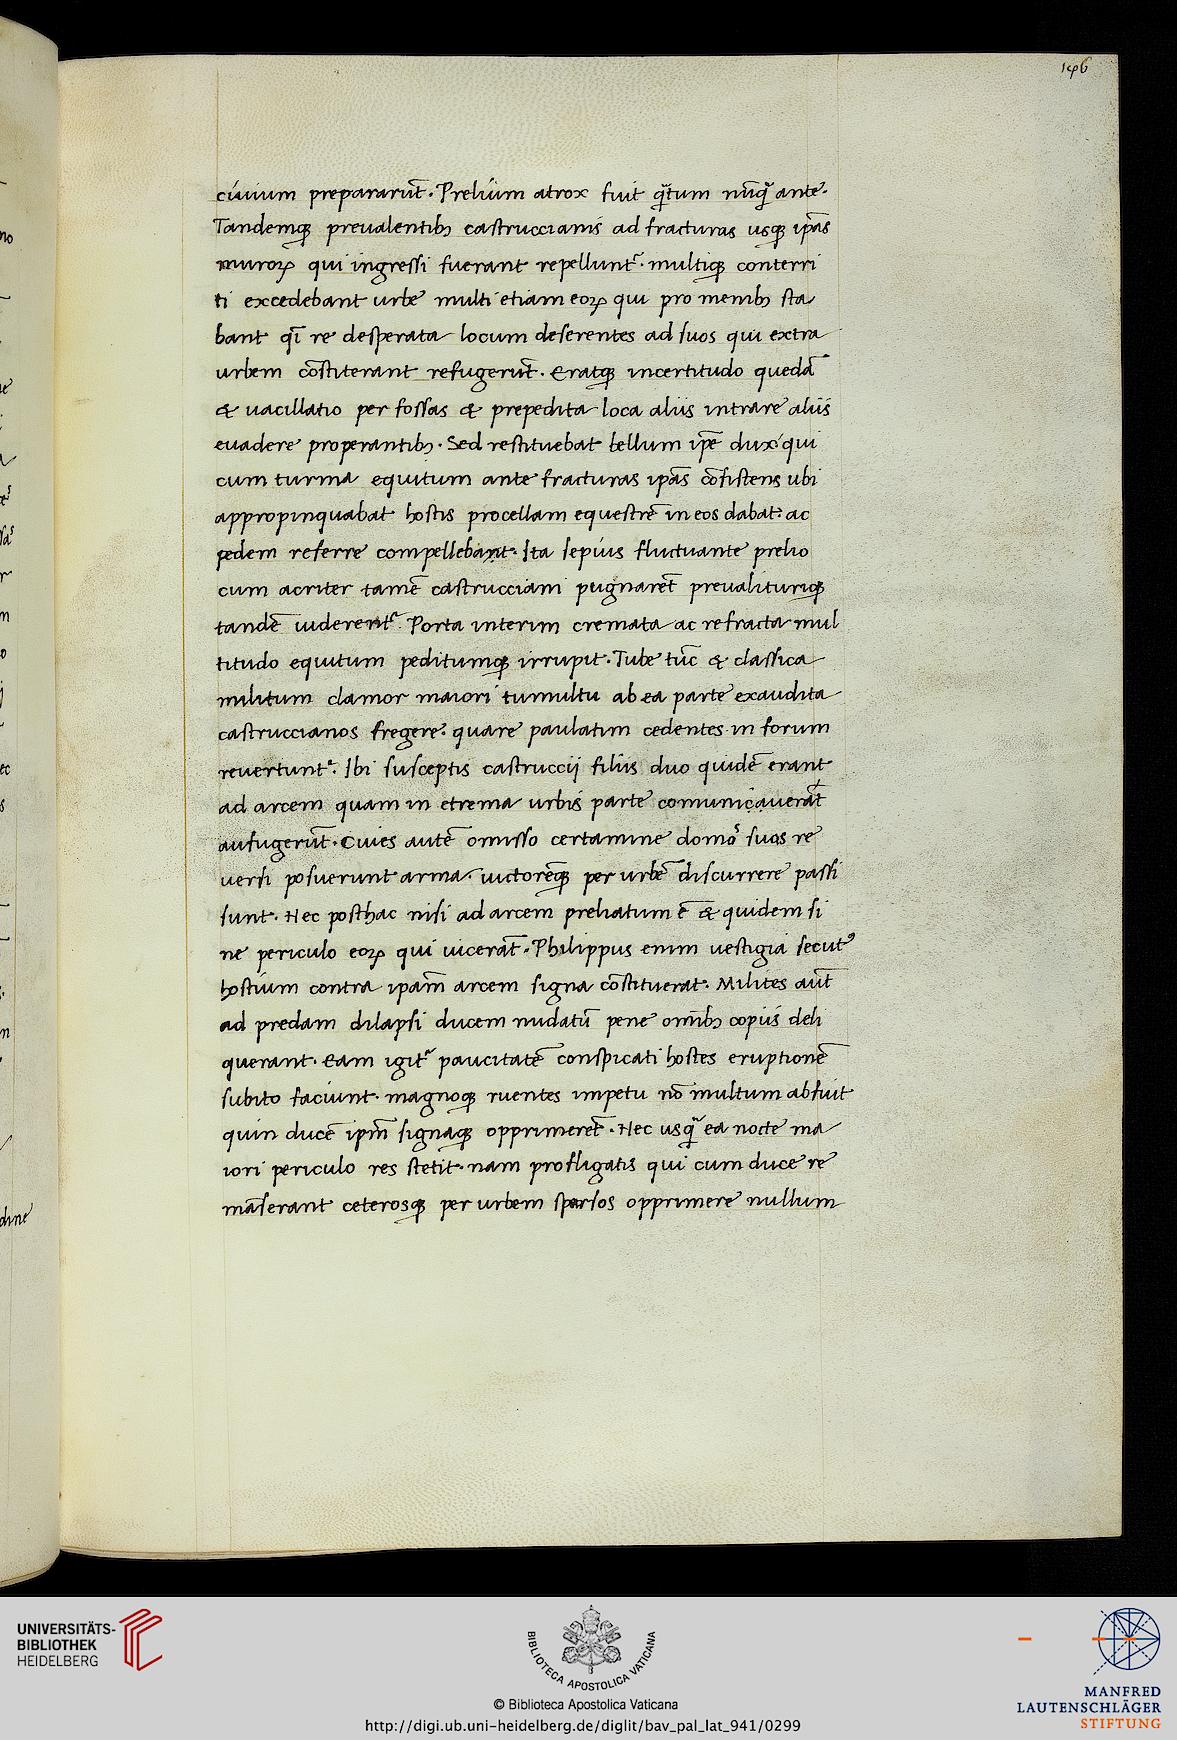 146
ciuium prepararūt. Preliūm atrox fuit q̄tum nūq̄ ante.
Tandemq; preualentib; castruccianis ad fracturas usq; ip̄as
muroꝝ qui ingressi fuerant repelluntᷣ. multiq; conterri
ti excedebant urbe multi etiam eoꝝ qui pro menib; sta
bant q̄i re desperata locum deserentes ad suos qui extra
urbem cōstiterant refugerūt. Eratq; incertitudo quedā
& uacillatio per fossas & prepedita loca aliis intrare aliis
euadere properantib;. Sed restituebat bellum ip̄e dux qui
cum turma equitum ante fracturas ip̄as cōsistens ubi
appropinquabat hostis procellam equestrē in eos dabat: ac
pedem referre compellebant. Ita sepius fluctuante prelio
cum acriter tamē castrucciani pugnarēt preualituriq;
tandē uiderentᷣ. Porta interim cremata ac refracta mul
titudo equitum peditumq; irrupit. Tube tūc & classica
militum clamor maiori tumultu ab ea parte exaudita
castruccianos fregere. quare paulatim cedentes in forum
reuertuntᷣ. Ibi susceptis castruccij filiis duo quidē erant
ad arcem quam in etrema urbis parte comunicauerāt
aufugerūt. Ciues autē omisso certamine domoˢ suos re
uersi posuerunt arma. uictorēq; per urbē discurrere passi
sunt. Nec posthac nisi ad arcem preliatum ē & quidem si
ne periculo eoꝝ qui uicerāt. Philippus enim uestigia secutꝰ
hostium contra ipam̄ arcem signa cōstituerat. Milites aūt
ad predam dilapsi ducem nudatū pene omīb; copiis deli
querant. Eam igitᷣ paucitatē conspicati hostes eruptionē
subito faciunt. magnoq; ruentes impetu nō multum abfuit
quin ducē ipm̄ signaq; opprimerēt. Nec usq̄ ea nocte ma
iori periculo res stetit. nam profligatis qui cum duce re
māserant ceterosq; per urbem sparsos opprimere nullum
UNIVERSITÄTS-
BIBLIOTHEK
HEIDELBERG
BIBLIOTECA APOSTOLICA VATICANA
© Biblioteca Apostolica Vaticana
http://digi.ub.uni-heidelberg.de/diglit/bav_pal_lat_941/0299
MANFRED
LAUTENSCHLÄGER
STIFTUNG